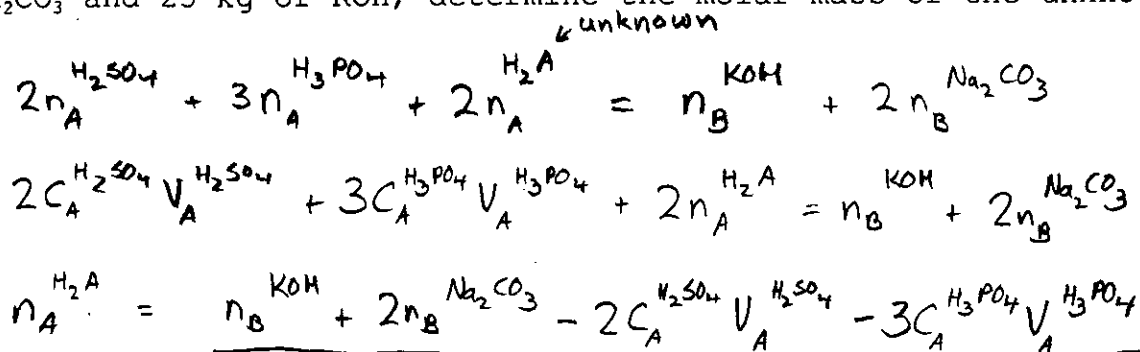 ₂CO₃ and 25 kg of KOH, determine the molar mass of the
↙ unknown
2n_A^{H₂SO₄} + 3n_A^{H₃PO₄} + 2n_A^{H₂A} = n_B^{KOH} + 2n_B^{Na₂CO₃}
2C_A^{H₂SO₄} V_A^{H₂SO₄} + 3C_A^{H₃PO₄} V_A^{H₃PO₄} + 2n_A^{H₂A} = n_B^{KOH} + 2n_B^{Na₂CO₃}
n_A^{H₂A} = n_B^{KOH} + 2n_B^{Na₂CO₃} - 2C_A^{H₂SO₄} V_A^{H₂SO₄} - 3C_A^{H₃PO₄} V_A^{H₃PO₄}